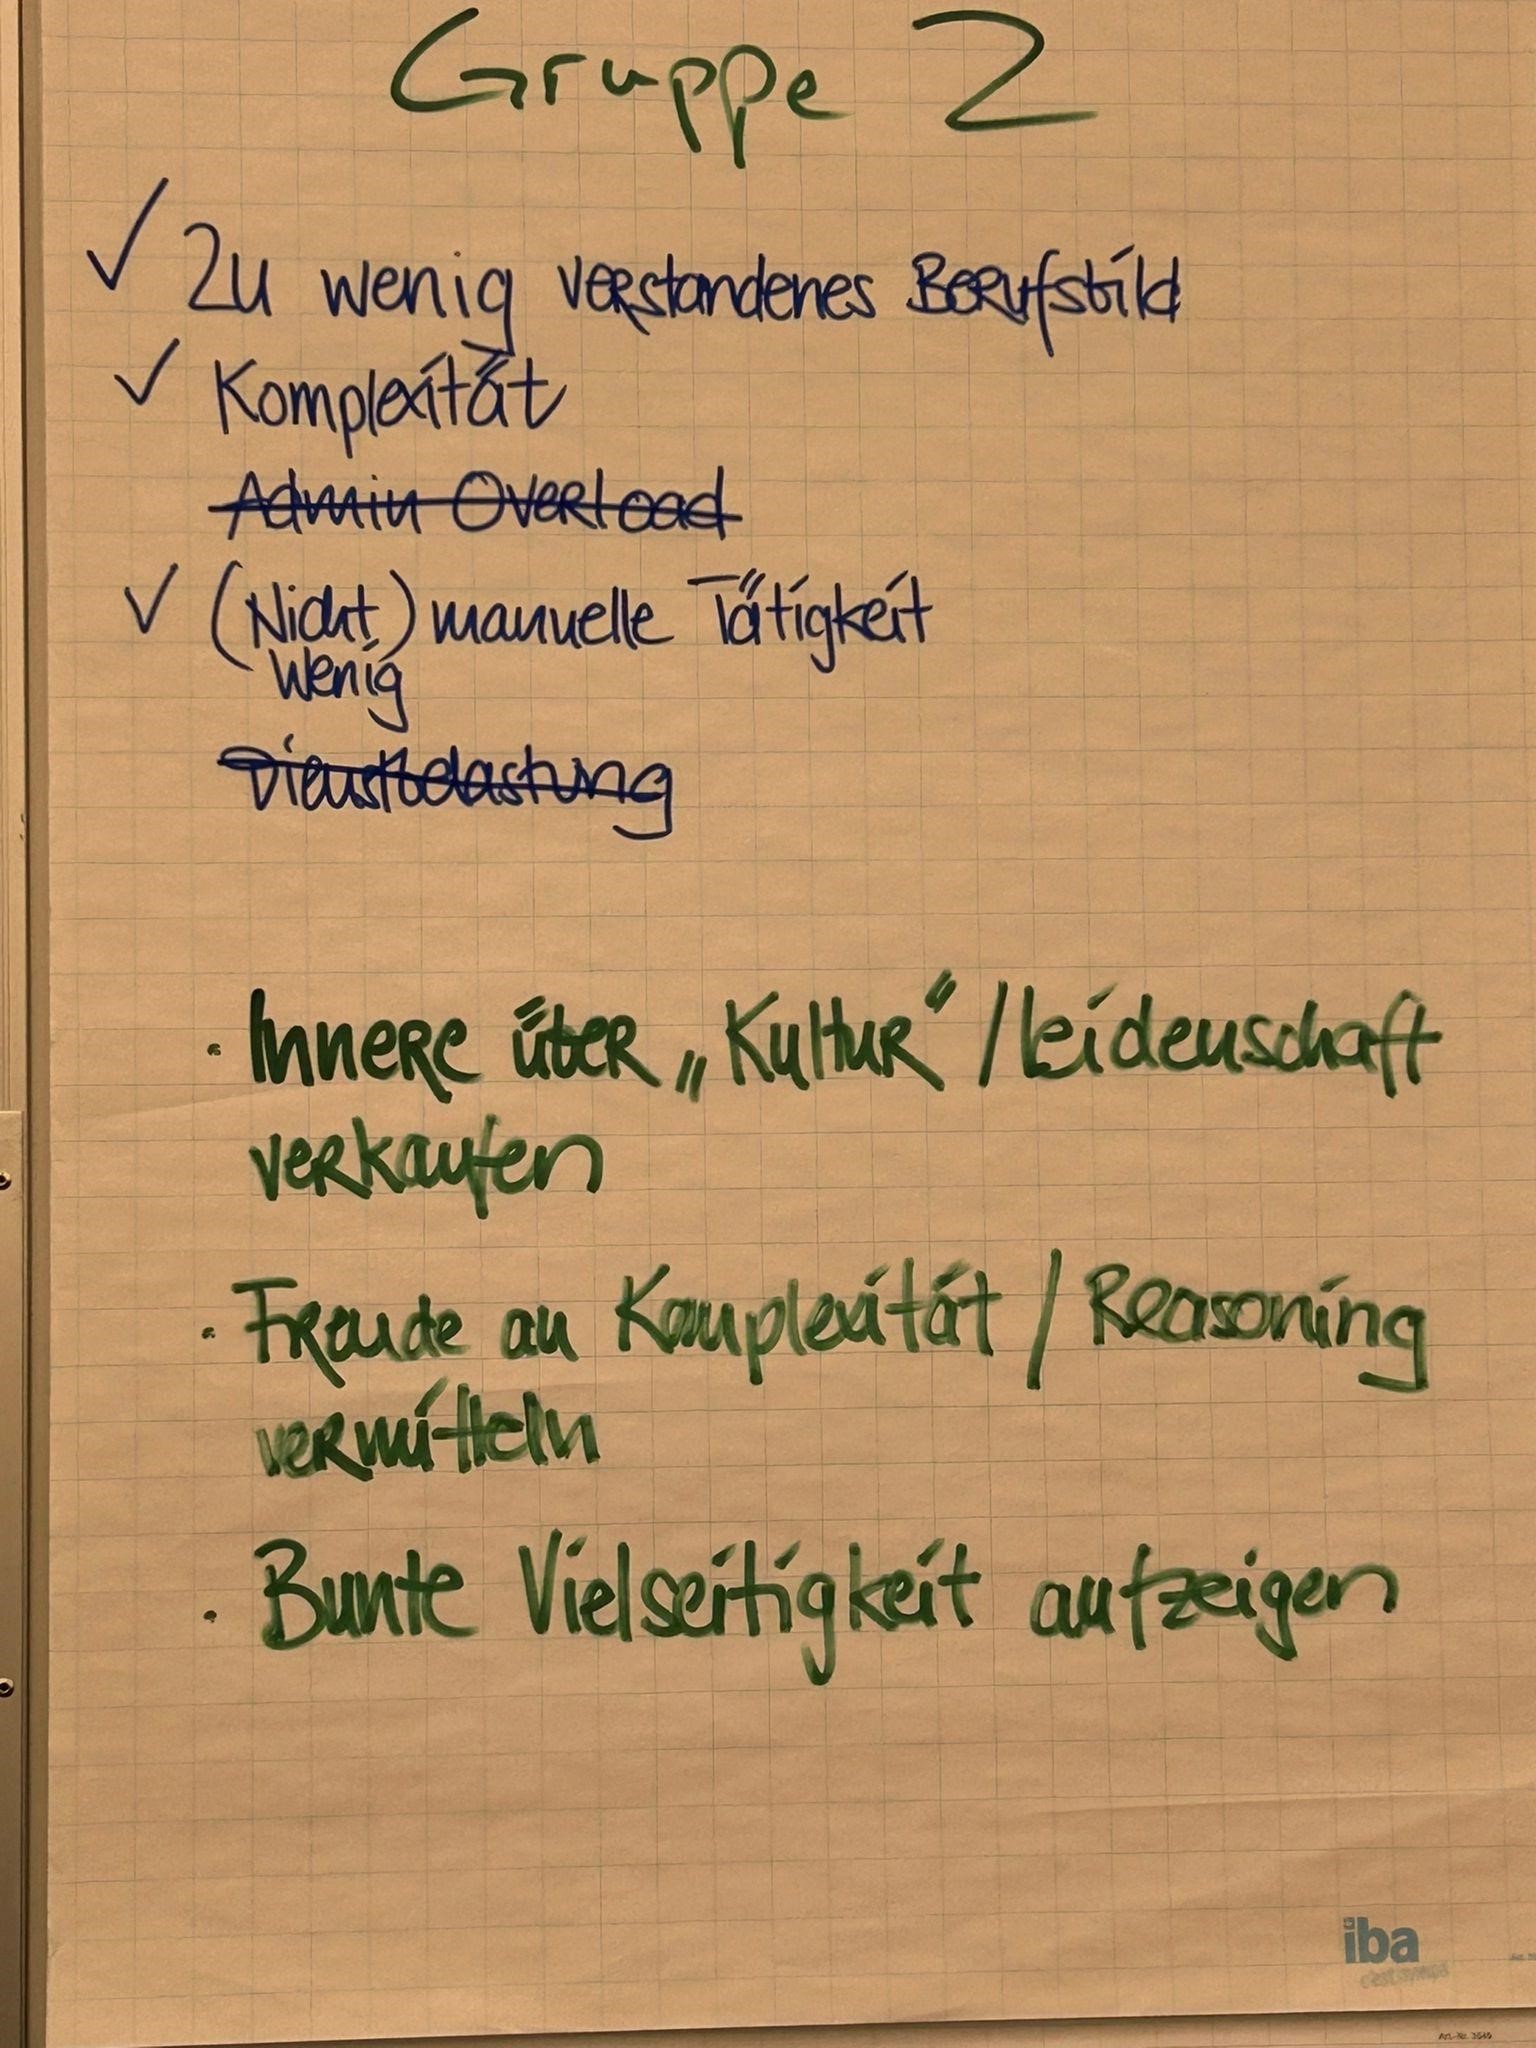 Gruppe 2
✓ Zu wenig verstandenes Berufsbild
✓ Komplexität
Admin Overload
✓ (Nicht) manuelle Tätigkeit
Wenig
Dienstbelastung
· Innere über „Kultur" / Leidenschaft
verkaufen
· Freude an Komplexität / Reasoning
vermitteln
· Bunte Vielseitigkeit aufzeigen
iba